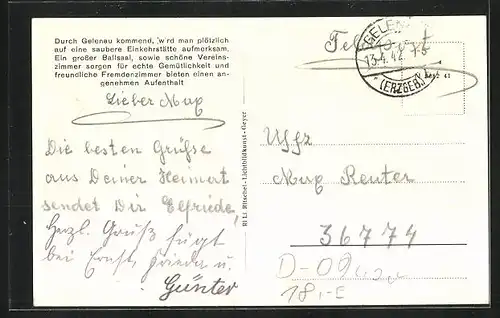 Durch Gelenau kommend, wird man plötzlich
auf eine saubere Einkehrstätte aufmerksam.
Ein großer Ballsaal, sowie schöne Vereins-
zimmer sorgen für echte Gemütlichkeit und
freundliche Fremdenzimmer bieten einen an-
genehmen Aufenthalt
Lieber Max
Die besten Grüsse
aus Deiner Heimat
sendet Dir Elfriede,
Herzl. Gruß fügt
bei Ernst, Frieda u.
Günter
Ritschel-Lichtbildkunst-Geyer
GELENAU
13.4.42
(ERZGEB.)
Feldpost
Uffz
Max Reuter
36774
D-09
18,-E